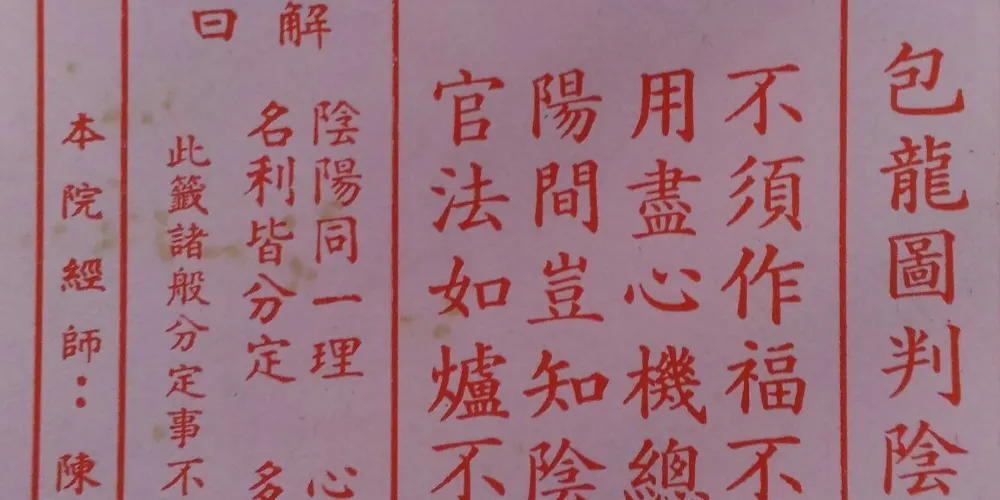 包龍圖判陰
不須作福不
用盡心機總
陽間豈知陰
官法如爐不
解曰
陰陽同一理 心
名利皆分定 多
此籤諸般分定事不
本院經師：陳